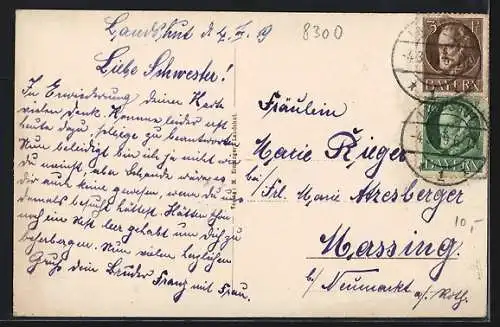 Landshut d. 4. III 19
8300
Liebe Schwester!
In Erwiederung deiner Karte
vielen Dank. Komme leider erst
heute dazu, selbige zu beantworten.
Nun beleidigt bin ich ja nicht wie
du meinst, aber Schande wäre es
dir auch keine gewesen, wenn du uns
damals besucht hättest. Hätten schon
noch ein Nest leer gehabt um Dich zu
beherbergen. Nun vielen herzlichen
Gruß dein Bruder Franz mit Frau.
Fräulein
Marie Rieger
bei Frl. Marie Atzesberger
Massing.
b/ Neumarkt a/. Roth.
3 PF
BAYERN
BAYERN
10,-